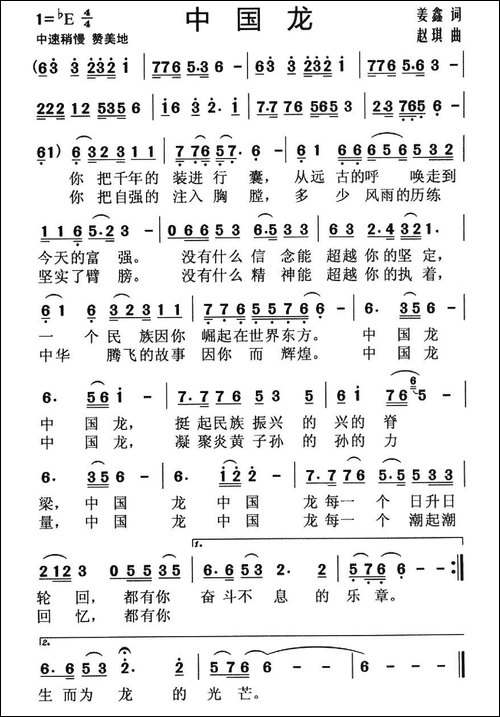 中国龙
1=♭E 4/4
姜鑫 词
中速稍慢 赞美地
赵琪 曲
(63 3 2321 | 776 5·3 | 63 3 2321 | 775 5·6 3 |
222 12 535 6 | i6 3 2·i | 7·7 76 565 3 | 2·3 765 6 |
61) 6 32311 | 776 57· 6 - | 6 6 66565 32 |
你 把千年的 装进 行 囊, 从远 古的呼 唤走到
你 把自强的 注入 胸 膛, 多 少 风雨的历练
116 5·2 3 - | 0 6653 6·5 | 63 2·4 3·2 3 |
今天的富 强。 没有什么 信 念能 超越 你的坚 定,
坚实了臂 膀。 没有什么 精 神能 超越 你的执 着,
61 6 32311 | 77655766 | 6· 356 - |
一 个 民 族因你 崛起在世界东方。 中 国 龙
中华 腾飞的故事 因你 而 辉煌。 中 国 龙
6· 56i - | 7·77653 52 3 | 6i 76 5 - |
中 国 龙, 挺 起民族 振兴 的 兴的 脊
中 国 龙, 凝 聚炎黄 子孙 的 孙的 力
6· 356 - | 6· i2i - | 7·7776 5·5533 |
梁, 中 国 龙 中 国 龙 每一 个 日升日
量, 中 国 龙 中 国 龙 每一 个 潮起潮
2123 05535 | 6·653 2·2 | 5766 - :|
1.
轮 回, 都有你 奋斗不 息 的 乐 章。
回 忆, 都有你
2.
6·653 2·2 | 5766 - | 6 - - - |
生 而为 龙 的 光 芒。